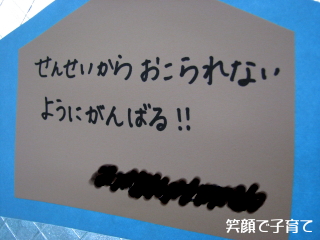 せんせいから おこられない
ようにがんばる!!
笑顔で子育て